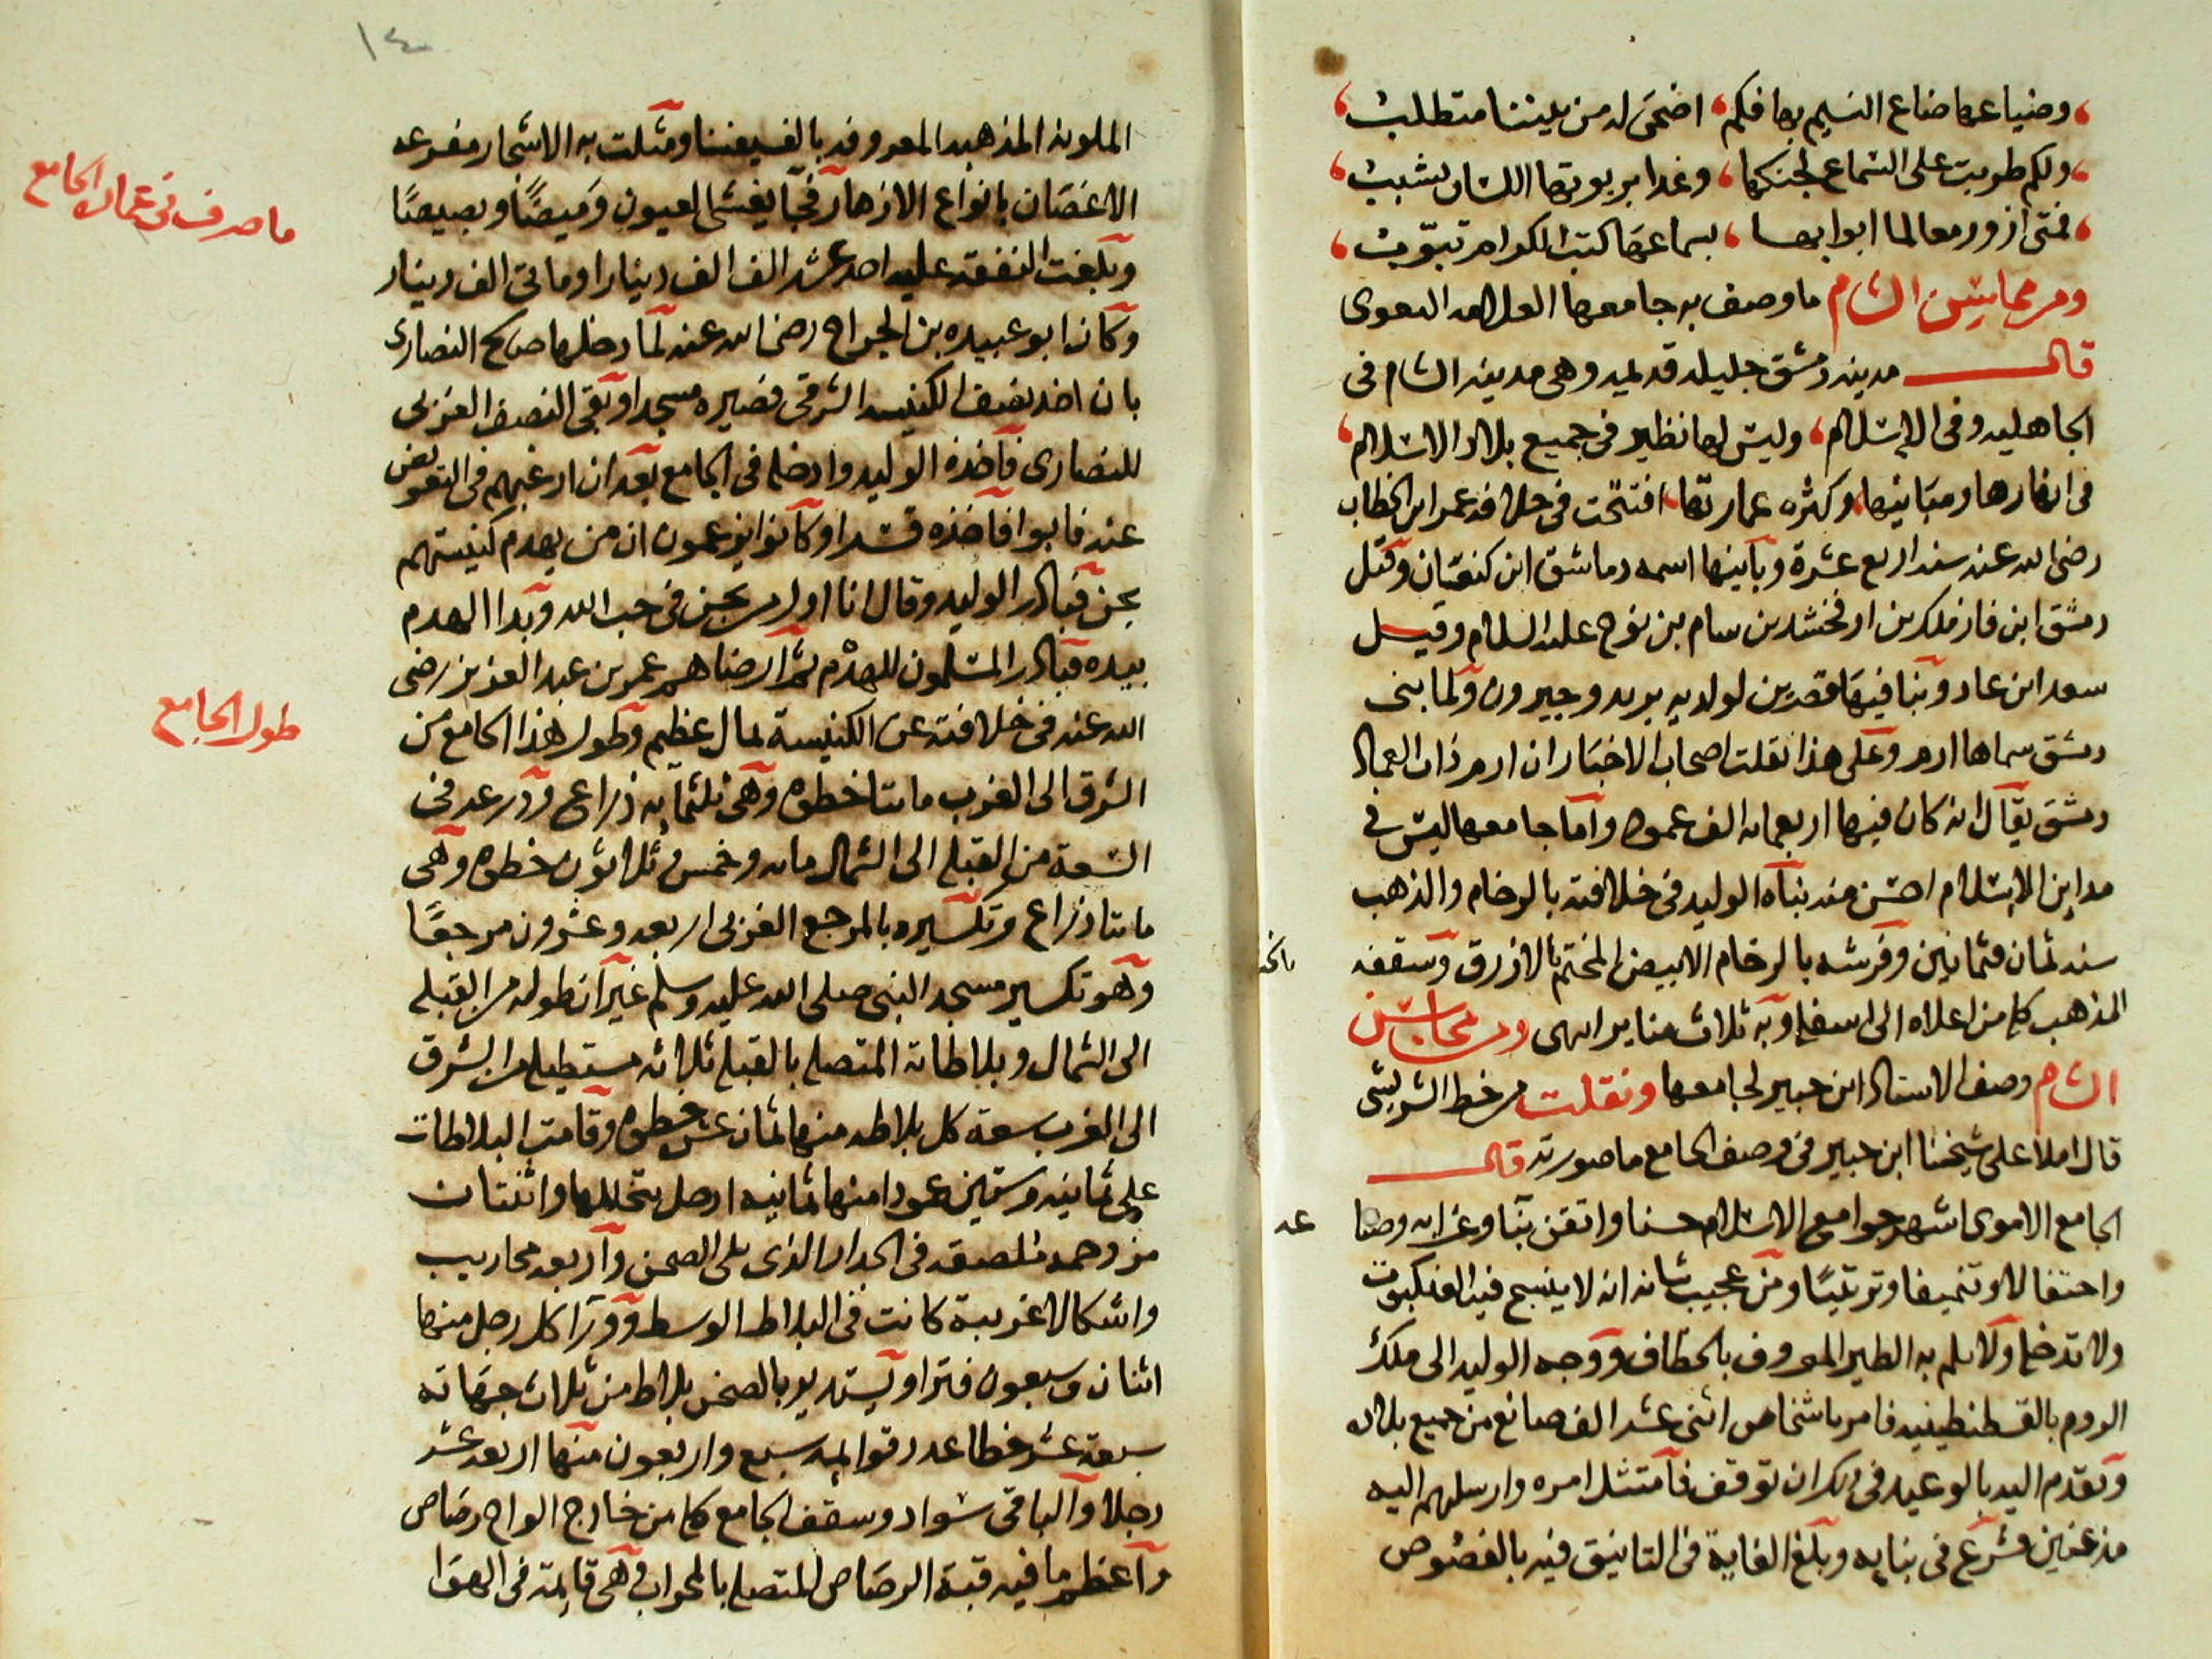 وضياعها ضاع النسيم بها فكم، اضحى له من بيننا متطلب،
ولكم طربت على السماع لجنكها، وغدا بربوتها اللسان يشبب،
فمتى ازور معالما ابوابها، بسماعها كتب الكرام تبوّب،
ومن محاسن الشام ما وصف به جامعها
قال مدينة دمشق جليلة قديمه وهى مدينة الشام فى
الجاهليه وفى الاسلام، وليس لها نظير فى جميع بلاد الاسلام،
فى انهارها ومبانيها، وكثره عمارتها، افتتحت فى خلافة عمر ابن الخطاب
رضى الله عنه سنة اربع عشرة وبانيها اسمه دماشق ابن كنعان وقيل
دمشق ابن ارفخشد بن سام بن نوح عليه السلام وقيل
سعد ابن عاد وبنا فيها قصرين لولديه بريد وجيرون ولما بنى
دمشق سماها ارم وعلى هذا نقلت اصحاب الاخبار ان ارم ذات العماد
دمشق يقال انه كان فيها اربعمائه الف عمود واما جامعها ليس فى
مداين الاسلام احسن منه بناه الوليد فى خلافته بالرخام والذهب
سنة ثمان وثمانين وفرشه بالرخام الابيض المختم بالازرق وسقفه
المذهب كله من اعلاه الى اسفله وبه ثلاث مناير انتهى ومن محاسن
الشام وصف الاستاد ابن جبير لجامعها ونقلت من خط الشريشى
قال املا على شيخنا ابن جبير فى وصف الجامع ما صورته قال
الجامع الاموى اشهر جوامع الاسلام حسنا واتقن بنا وغرابه وصناعه
واحتفالا وتنميقا وتزيينا ومن عجيب شانه انه لا ينسج فيه العنكبوت
ولا تدخله ولا يلم به الطير المعروف بالخطاف ووجه الوليد الى ملك
الروم بالقسطنطينيه فامر باشخاص اثنى عشر الف صانع من جميع بلاده
وتقدم اليه بالوعيد فى ذلك ان توقف فامتثل امره وارسلهم اليه
مذعنين فشرع فى بنايه وبلغ الغاية فى التانيق فيه بالفصوص
١٤
الملونه المذهبه المعروفه بالفسيفسا ومثلت به الاشجار مفرعه
الاغصان بانواع الازهار فجا يغشى العيون وميضًا وبصيصًا
ما صرف فى عمارة الجامع
وبلغت النفقه عليه احد عشر الف الف دينارا ومائتى الف دينار
وكان ابو عبيده بن الجراح رضى الله عنه لما دخلها صالح النصارى
بان اخذ نصف الكنيسه الشرقى فصيره مسجدا وبقى النصف الغربى
للنصارى فاخذه الوليد وادخله فى الجامع بعد ان ارغبهم فى التعويض
عنه فابوا فاخذه قسرا وكانوا يزعمون ان من يهدم كنيستهم
يجن فبادر الوليد وقال انا اول من يجن فى حب الله وبدا الهدم
بيده فبادر المسلمون للهدم ثم ارضاهم عمر بن عبد العزيز رضى
الله عنه فى خلافته عن الكنيسة بمال عظيم وطول هذا الجامع من
طول الجامع
الشرق الى الغرب مائتا خطوه وهى ثلثمايه ذراع وذرعه فى
السعة من القبله الى الشمال مائه وخمس وثلاثون خطوه وهى
مائتا ذراع وتكسيره بالمرجع الغربى اربعه وعشرون مرجعًا
وهو تكسير مسجد النبى صلى الله عليه وسلم غير ان طوله من القبله
الى الشمال وبلاطاته المتصله بالقبله ثلاثه مستطيله من الشرق
الى الغرب سعة كل بلاطه منها ثمان عشر خطوه وقامت البلاطات
على ثمانيه وستين عمودا منها ثمانيه ارجل تتخللها واثنتان
مرخمه ملصقه فى الجدار الذى يلى الصحن واربعه محاريب
واشكالا غريبة كانت فى البلاط الوسط ودور كل رجل منها
اثنان وسبعون فترا ويستدير بالصحن بلاط من ثلاث جهاته
سبعة عشر خطا عدد قوايمه سبع واربعون منها اربعه عشر
رجلا والباقى سوار وسقف الجامع كله من خارج الواح رصاص
واعظم ما فيه قبة الرصاص المتصله بالمحراب وهى قايمة فى الهوا